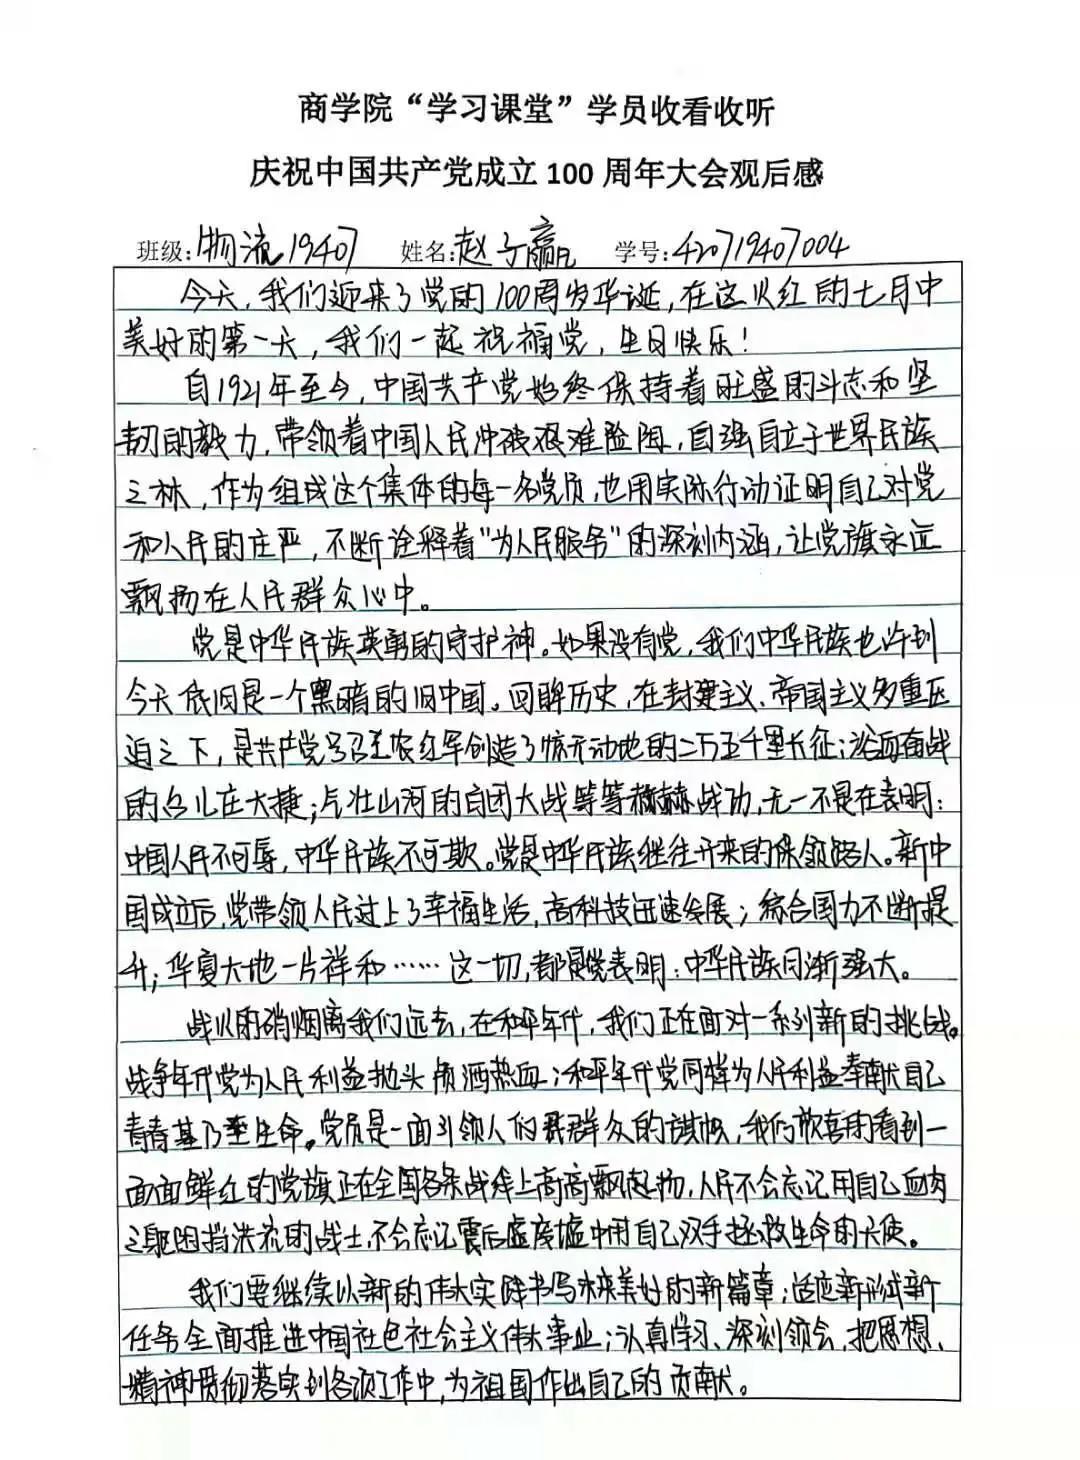 商学院“学习课堂”学员收看收听
庆祝中国共产党成立 100 周年大会观后感
班级:物流19407 姓名:赵子赢 学号:420719407004
今天,我们迎来了党的100周岁华诞,在这火红的七月中
美好的第一天,我们一起祝福党,生日快乐!
自1921年至今,中国共产党始终保持着旺盛的斗志和坚
韧的毅力,带领着中国人民冲破艰难险阻,自强自立于世界民族
之林,作为组成这个集体的每一名党员,也用实际行动证明自己对党
和人民的庄严,不断诠释着"为人民服务"的深刻内涵,让党旗永远
飘扬在人民群众心中。
党是中华民族英勇的守护神。如果没有党,我们中华民族也许到
今天依旧是一个黑暗的旧中国。回眸历史,在封建主义、帝国主义多重压
迫之下,是共产党号召工农红军创造了惊天动地的二万五千里长征;浴血奋战
的台儿庄大捷;气壮山河的百团大战等等赫赫战功,无一不是在表明:
中国人民不可辱,中华民族不可欺。党是中华民族继往开来的保领路人。新中
国成立后,党带领人民过上了幸福生活,高科技迅速发展;综合国力不断提
升;华夏大地一片祥和……这一切,都是党表明:中华民族日渐强大。
战火的硝烟离我们远去,在和平年代,我们正在面对一系列新的挑战。
战争年代党为人民利益抛头颅洒热血;和平年代党同样为人民利益奉献自己
青春甚乃至生命。党员是一面引领人们群众的旗帜,我们欣喜的看到一
面面鲜红的党旗正在全国各条战线上高高飘起扬,人民不会忘记用自己血肉
之躯阻挡洪流的战士,不会忘记震后废墟中用自己双手拯救生命的天使。
我们要继续以新的伟大实践书写未来美好的新篇章;适应新形式新
任务全面推进中国社色社会主义伟大事业;认真学习、深刻领会,把思想、
精神贯彻落实到各项工作中,为祖国作出自己的贡献。